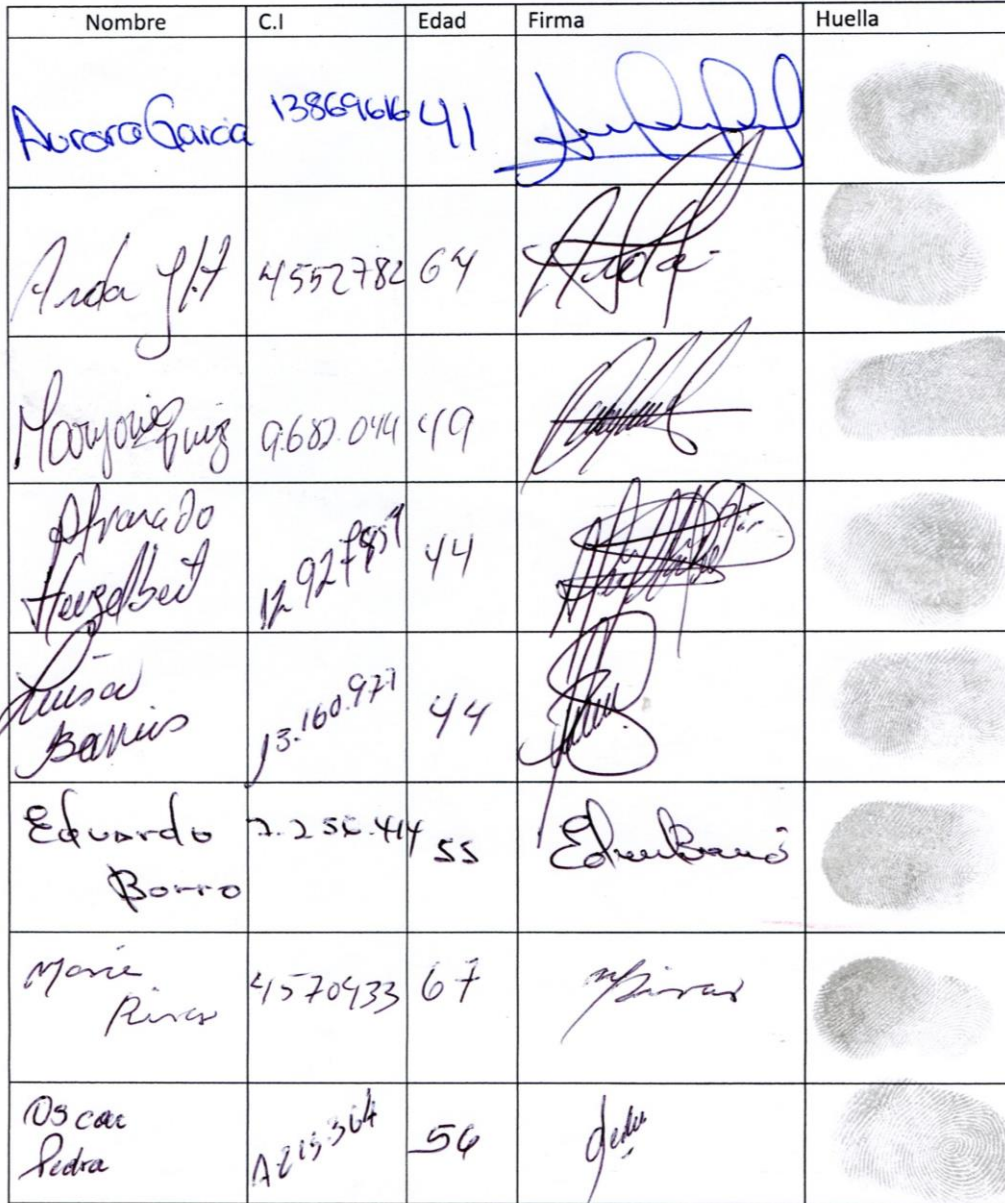 Nombre C.I Edad Firma Huella
Aurora García 13869616 41
Aida 4552782 64
Maryorie Ruiz 9.682.044 49
Alvarado
Heizelbert 12.927851 44
Luisa
Barrios 13.160.977 44
Eduardo 7.256.414 55
Borro
Maria
Rivas 4570433 67
Oscar
Pedra 56